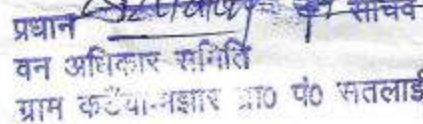 प्रधान सचिव
वन अधिकार समिति
ग्राम कटैया-मझार ग्रा० पं० सतलाई